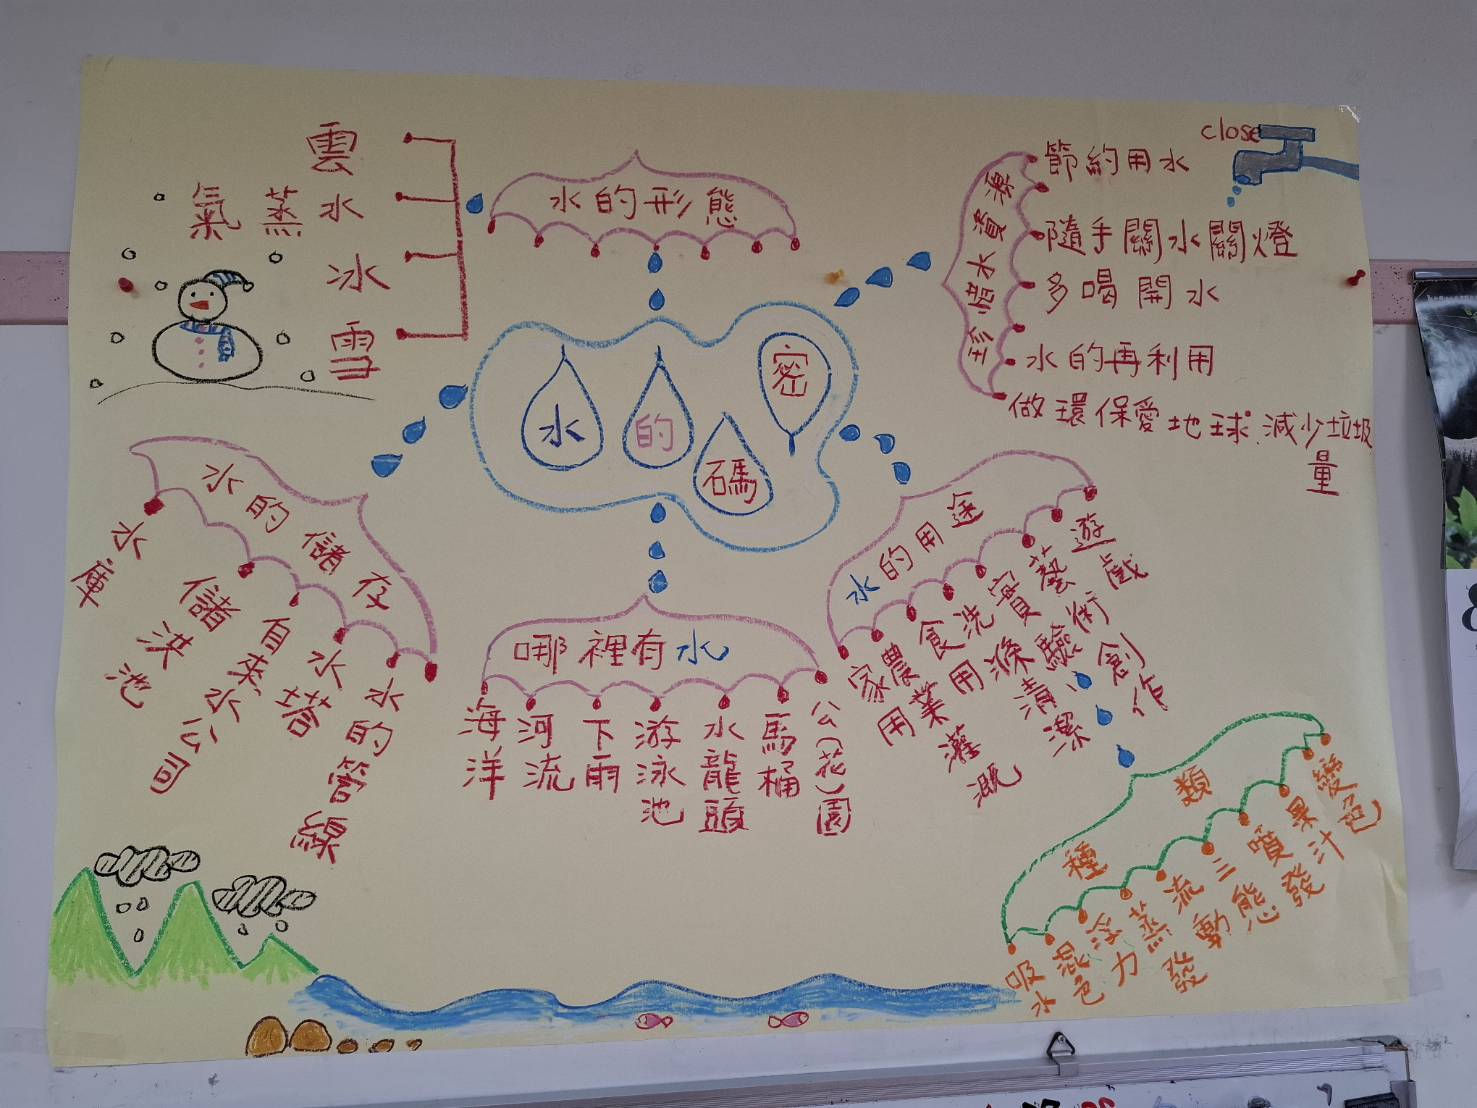 水的密碼
水的形態
雲
水蒸氣
冰
雪
珍惜水資源
close
節約用水
隨手關水關燈
多喝開水
水的再利用
做環保愛地球.減少垃圾量
水的儲存
水庫
儲洪池
自來水公司
水塔
水的管線
哪裡有水
海洋
河流
下雨
游泳池
水龍頭
馬桶
公(花)園
水的用途
家用
農業灌溉
食用
洗滌清潔
實驗
藝術創作
遊戲
種類
吸水
混色
浮力
蒸發
流動
三態
噴發
果汁
變色